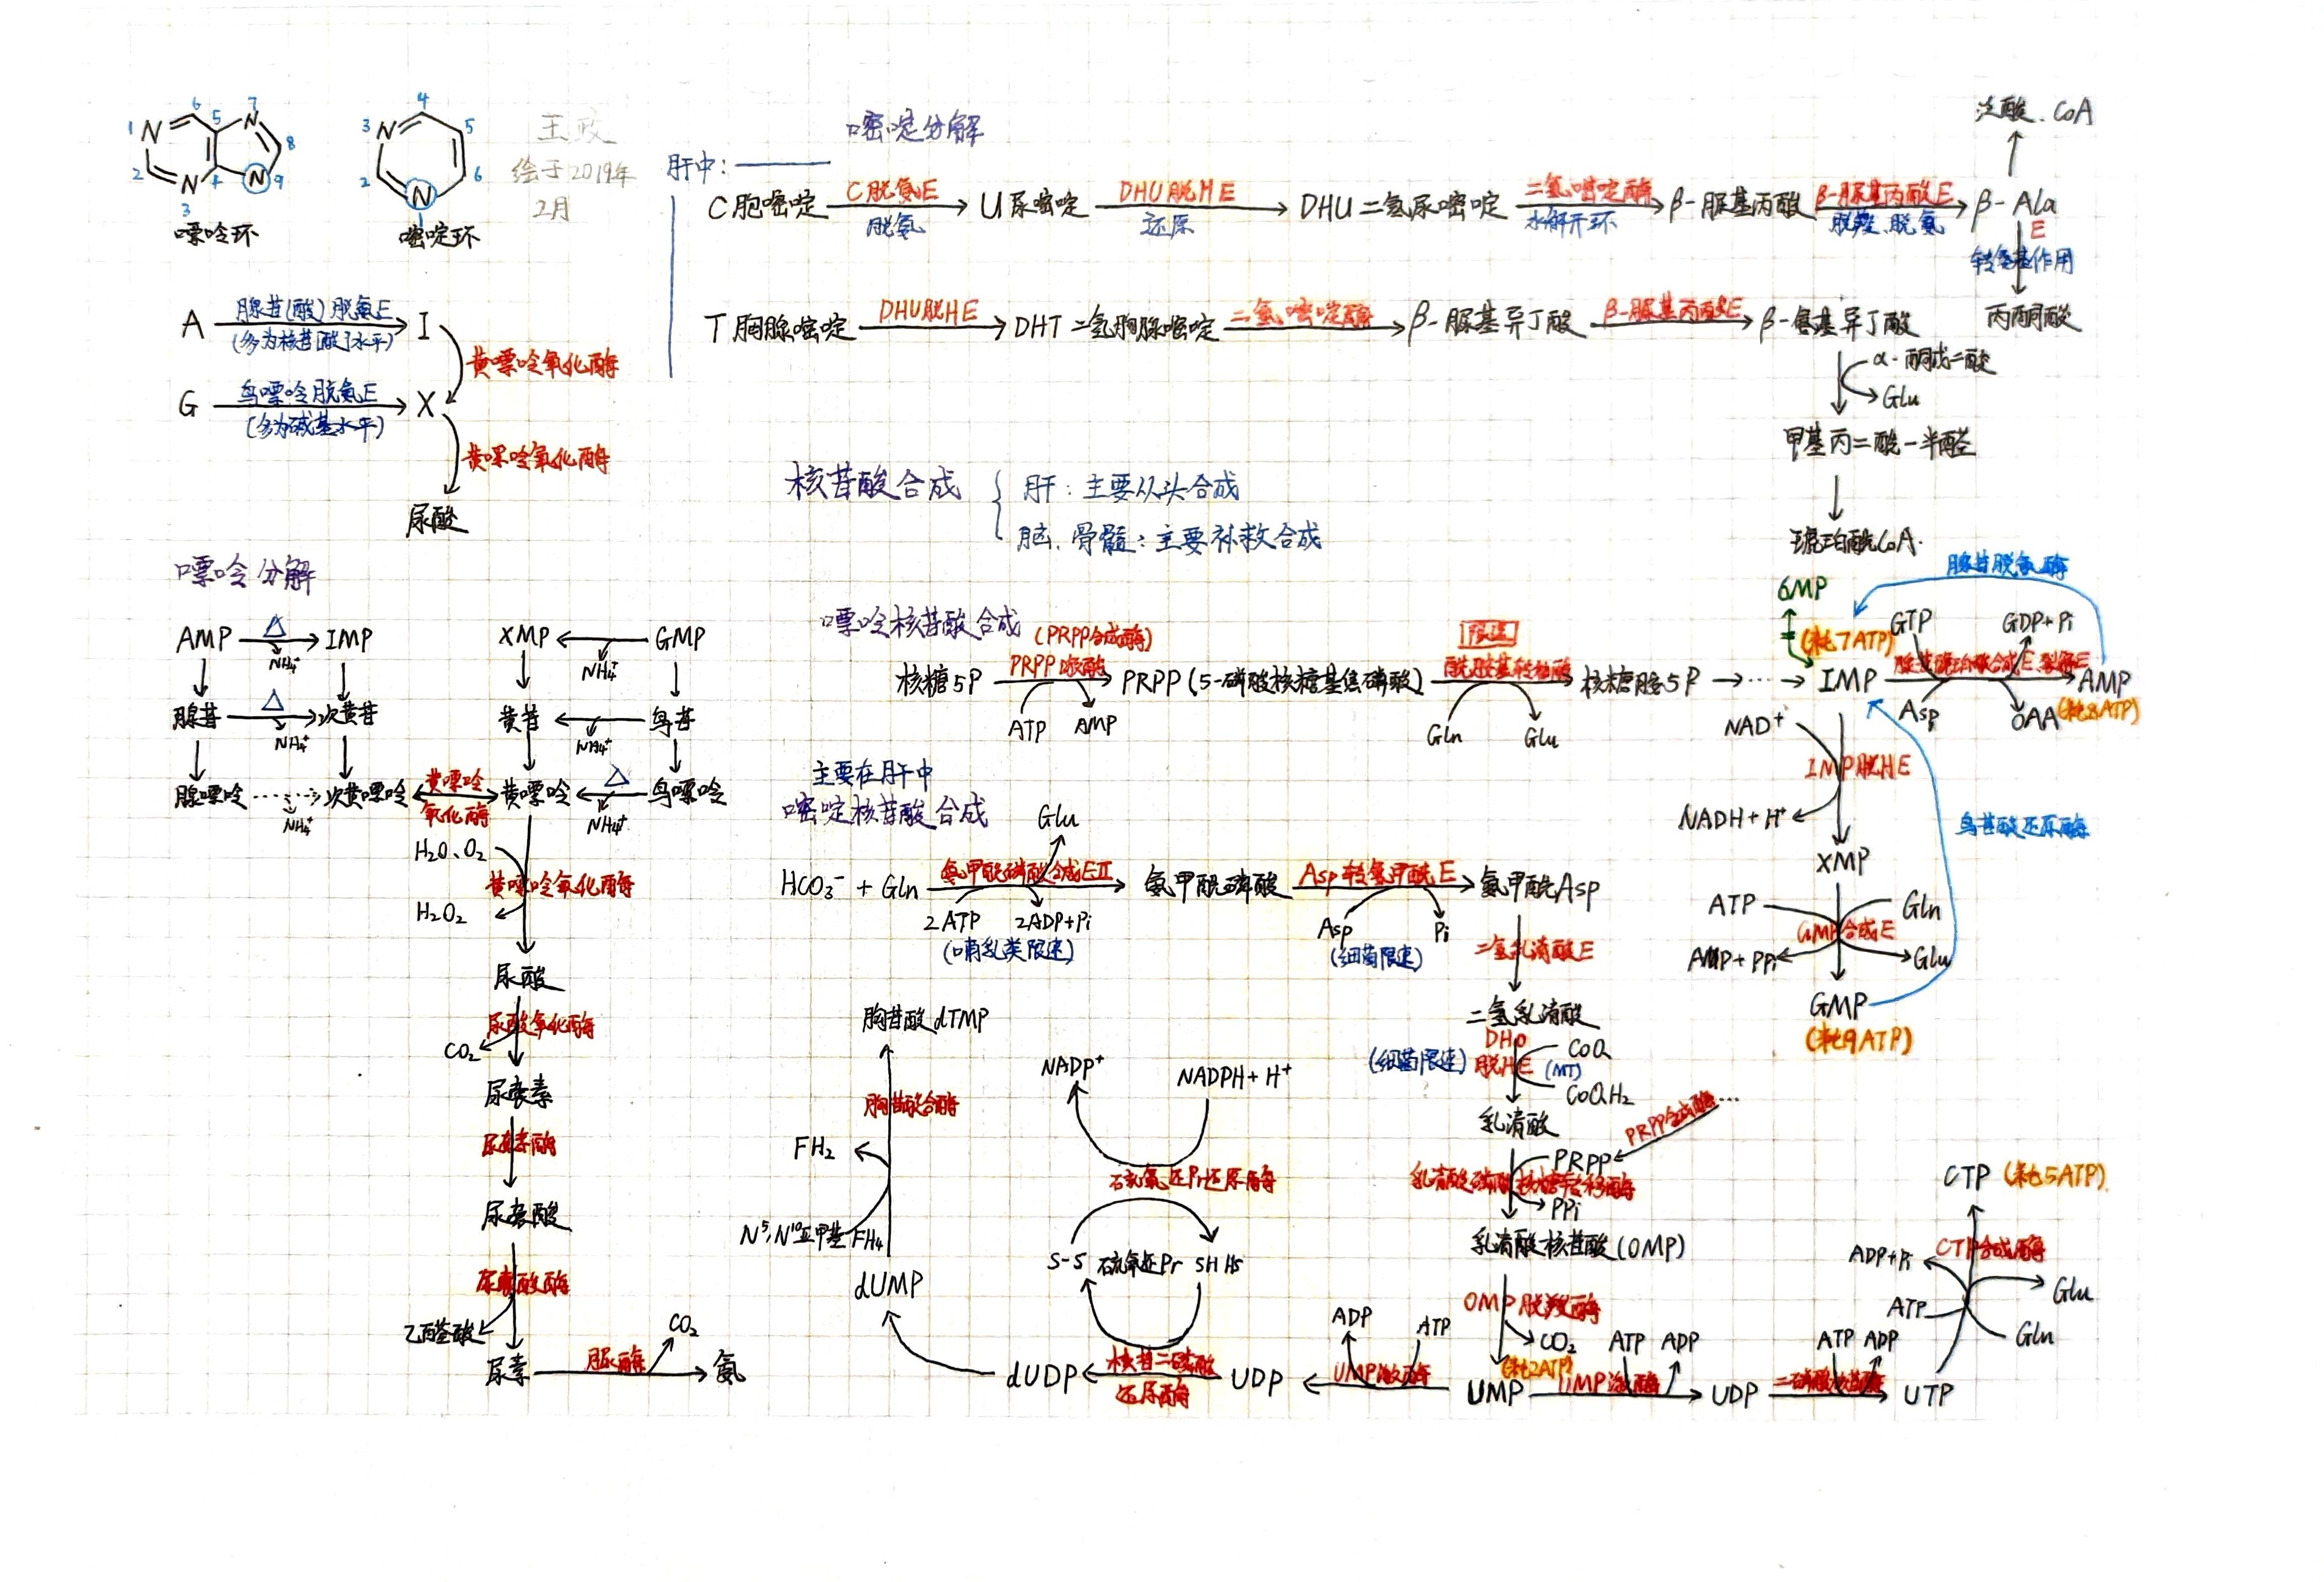 1 N 6 5 7 N 8 2 N 4 N 9 3
嘌呤环
4 3 N 5 2 6 N 1
嘧啶环
王政
绘于2019年
2月
A 腺苷(酸)脱氨E I
(多为核苷[酸]水平)
黄嘌呤氧化酶
G 鸟嘌呤脱氨E X
(多为碱基水平)
黄嘌呤氧化酶
尿酸
嘧啶分解
肝中:
C胞嘧啶 C脱氨E 脱氨 U尿嘧啶 DHU脱H E 还原 DHU二氢尿嘧啶 二氢嘧啶酶 水解开环 β-脲基丙酸 β-脲基丙酸E 脱羧、脱氨 β-Ala
泛酸、CoA
E
转氨基作用
丙酮酸
T胸腺嘧啶 DHU脱HE DHT二氢胸腺嘧啶 二氢嘧啶酶 β-脲基异丁酸 β-脲基丙酸E β-氨基异丁酸
α-酮戊二酸
Glu
甲基丙二酸一半醛
琥珀酰CoA.
核苷酸合成
肝:主要从头合成
脑、骨髓:主要补救合成
嘌呤分解
AMP △ NH₄⁺ IMP
腺苷 △ NH₄⁺ 次黄苷
腺嘌呤 NH₄⁺ 次黄嘌呤
黄嘌呤
氧化酶
XMP NH₄⁺ GMP
黄苷 NH₄⁺ 鸟苷
黄嘌呤 △ NH₄⁺ 鸟嘌呤
H₂O、O₂
黄嘌呤氧化酶
H₂O₂
尿酸
尿酸氧化酶
CO₂
尿囊素
尿囊素酶
尿囊酸
尿囊酸酶
乙醛酸
尿素 脲酶 CO₂ 氨
嘌呤核苷酸合成
(PRPP合成酶)
核糖5P PRPP激酶 PRPP(5-磷酸核糖基焦磷酸) 限速 酰胺基转移酶 核糖胺5P ··· IMP
ATP AMP
Gln Glu
6MP
(耗7ATP)
腺苷脱氨酶
GTP GDP+Pi
腺苷琥珀酸合成E、裂解E AMP
Asp OAA (耗8ATP)
NAD⁺
IMP脱HE
NADH+H⁺
鸟苷酸还原酶
XMP
ATP Gln
GMP合成E
AMP+PPi Glu
GMP
(耗9ATP)
主要在肝中
嘧啶核苷酸合成
Glu
HCO₃⁻ + Gln 氨甲酰磷酸合成EⅡ 氨甲酰磷酸 Asp转氨甲酰E 氨甲酰Asp
2ATP 2ADP+Pi
(哺乳类限速)
Asp Pi
(细菌限速)
二氢乳清酸E
二氢乳清酸
(细菌限速) DHO
脱HE
CoQ
(MT)
CoQH₂
乳清酸
PRPP合成酶 ···
PRPP
乳清酸磷酸核糖转移酶
PPi
乳清酸核苷酸(OMP)
OMP脱羧酶
CO₂
(耗2ATP)
UMP UMP激酶 ATP ADP UDP 二磷酸核苷激酶 ATP ADP UTP
CTP (耗5ATP)
CTP合成酶
ADP+Pi
Glu
ATP
Gln
ADP ATP
UMP激酶
UDP
核苷二磷酸
还原酶
dUDP
NADP⁺ NADPH+H⁺
硫氧还Pr还原酶
S-S 硫氧还Pr SH HS
dUMP
N⁵,N¹⁰亚甲基FH₄
FH₂
胸苷酸合酶
胸苷酸dTMP